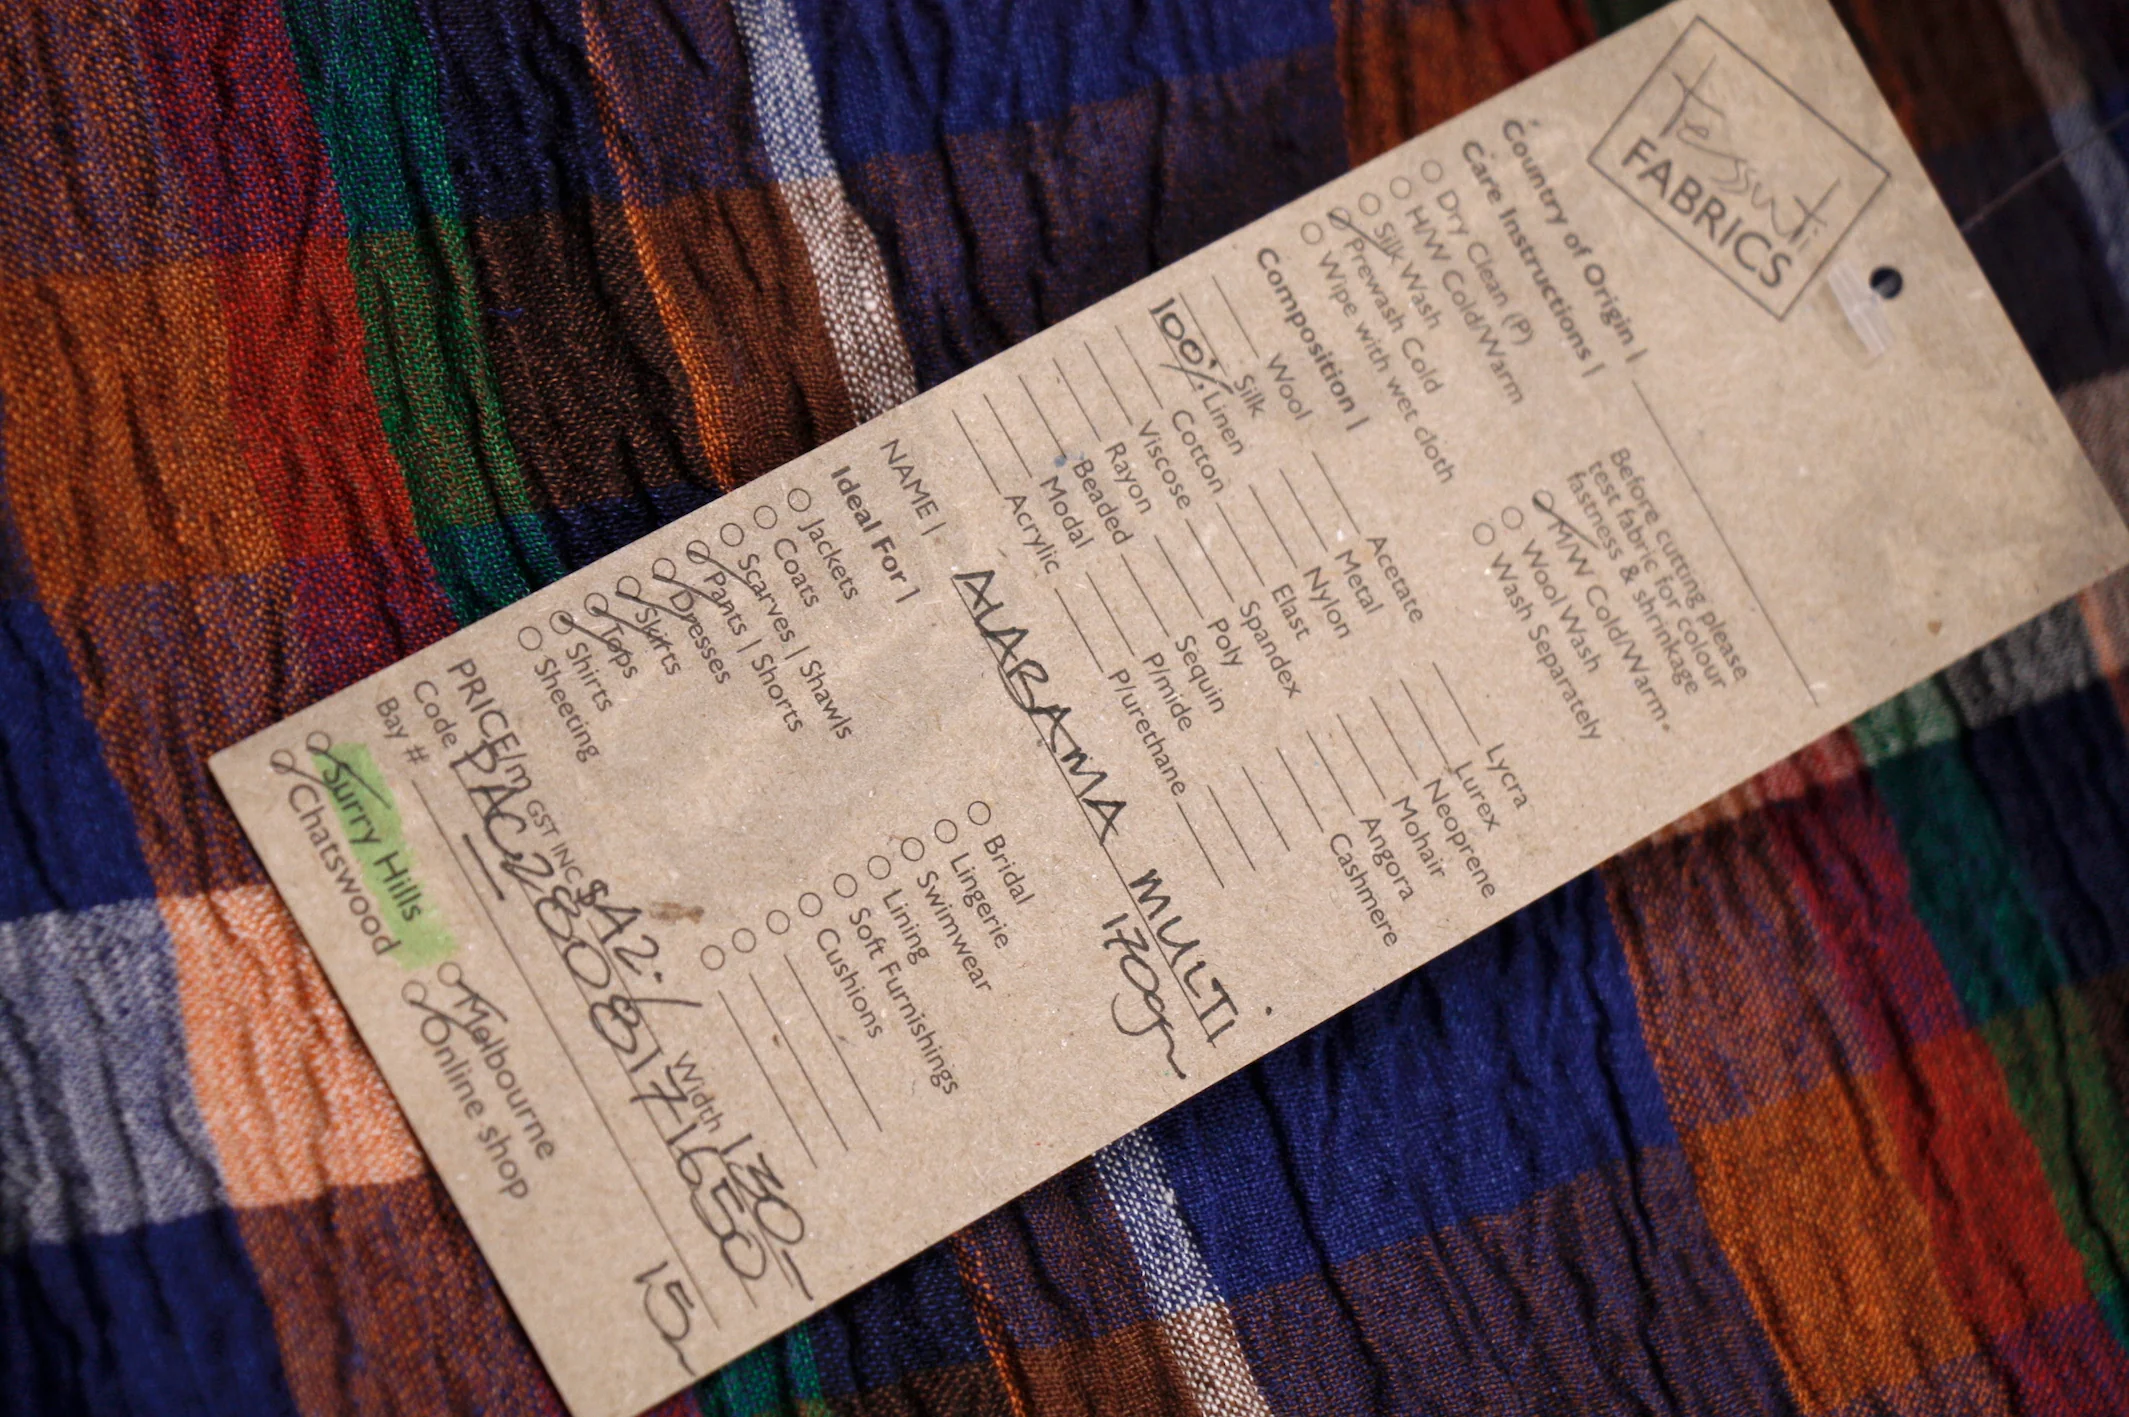 tessuti
FABRICS
Country of Origin |
Care Instructions |
Dry Clean (P)
H/W Cold/Warm
Silk Wash
Prewash Cold
Wipe with wet cloth
Before cutting please
test fabric for colour
fastness & shrinkage
M/W Cold/Warm.
Wool Wash
Wash Separately
Composition |
Wool Acetate Lycra
Silk Metal Lurex
100% Linen Nylon Neoprene
Cotton Elast Mohair
Viscose Spandex Angora
Rayon Poly Cashmere
Beaded Sequin
Modal P/mide
Acrylic P/urethane
NAME | ALABAMA MULTI
170gm
Ideal For |
Jackets Bridal
Coats Lingerie
Scarves | Shawls Swimwear
Pants | Shorts Lining
Dresses Soft Furnishings
Skirts Cushions
Tops
Shirts
Sheeting
PRICE/m GST INC $42·/ Width 130-
Code PAC2808171650
Bay #
Surry Hills Melbourne
Chatswood Online shop
15m